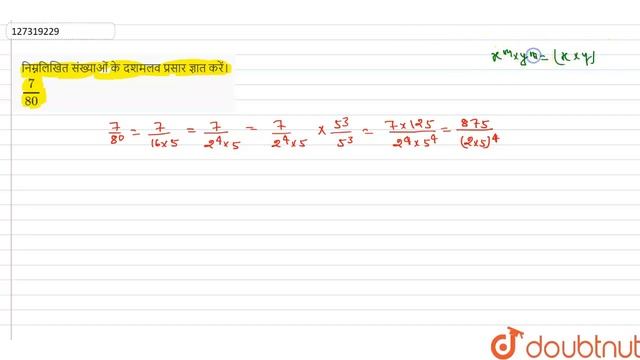 127319229
निम्नलिखित संख्याओं के दशमलव प्रसार ज्ञात करें।
7/80
x^m × y^m = (x × y)
7/80 = 7/(16×5) = 7/(2^4×5) = 7/(2^4×5) × 5^3/5^3 = (7×125)/(2^4×5^4) = 875/(2×5)^4
doubtnut